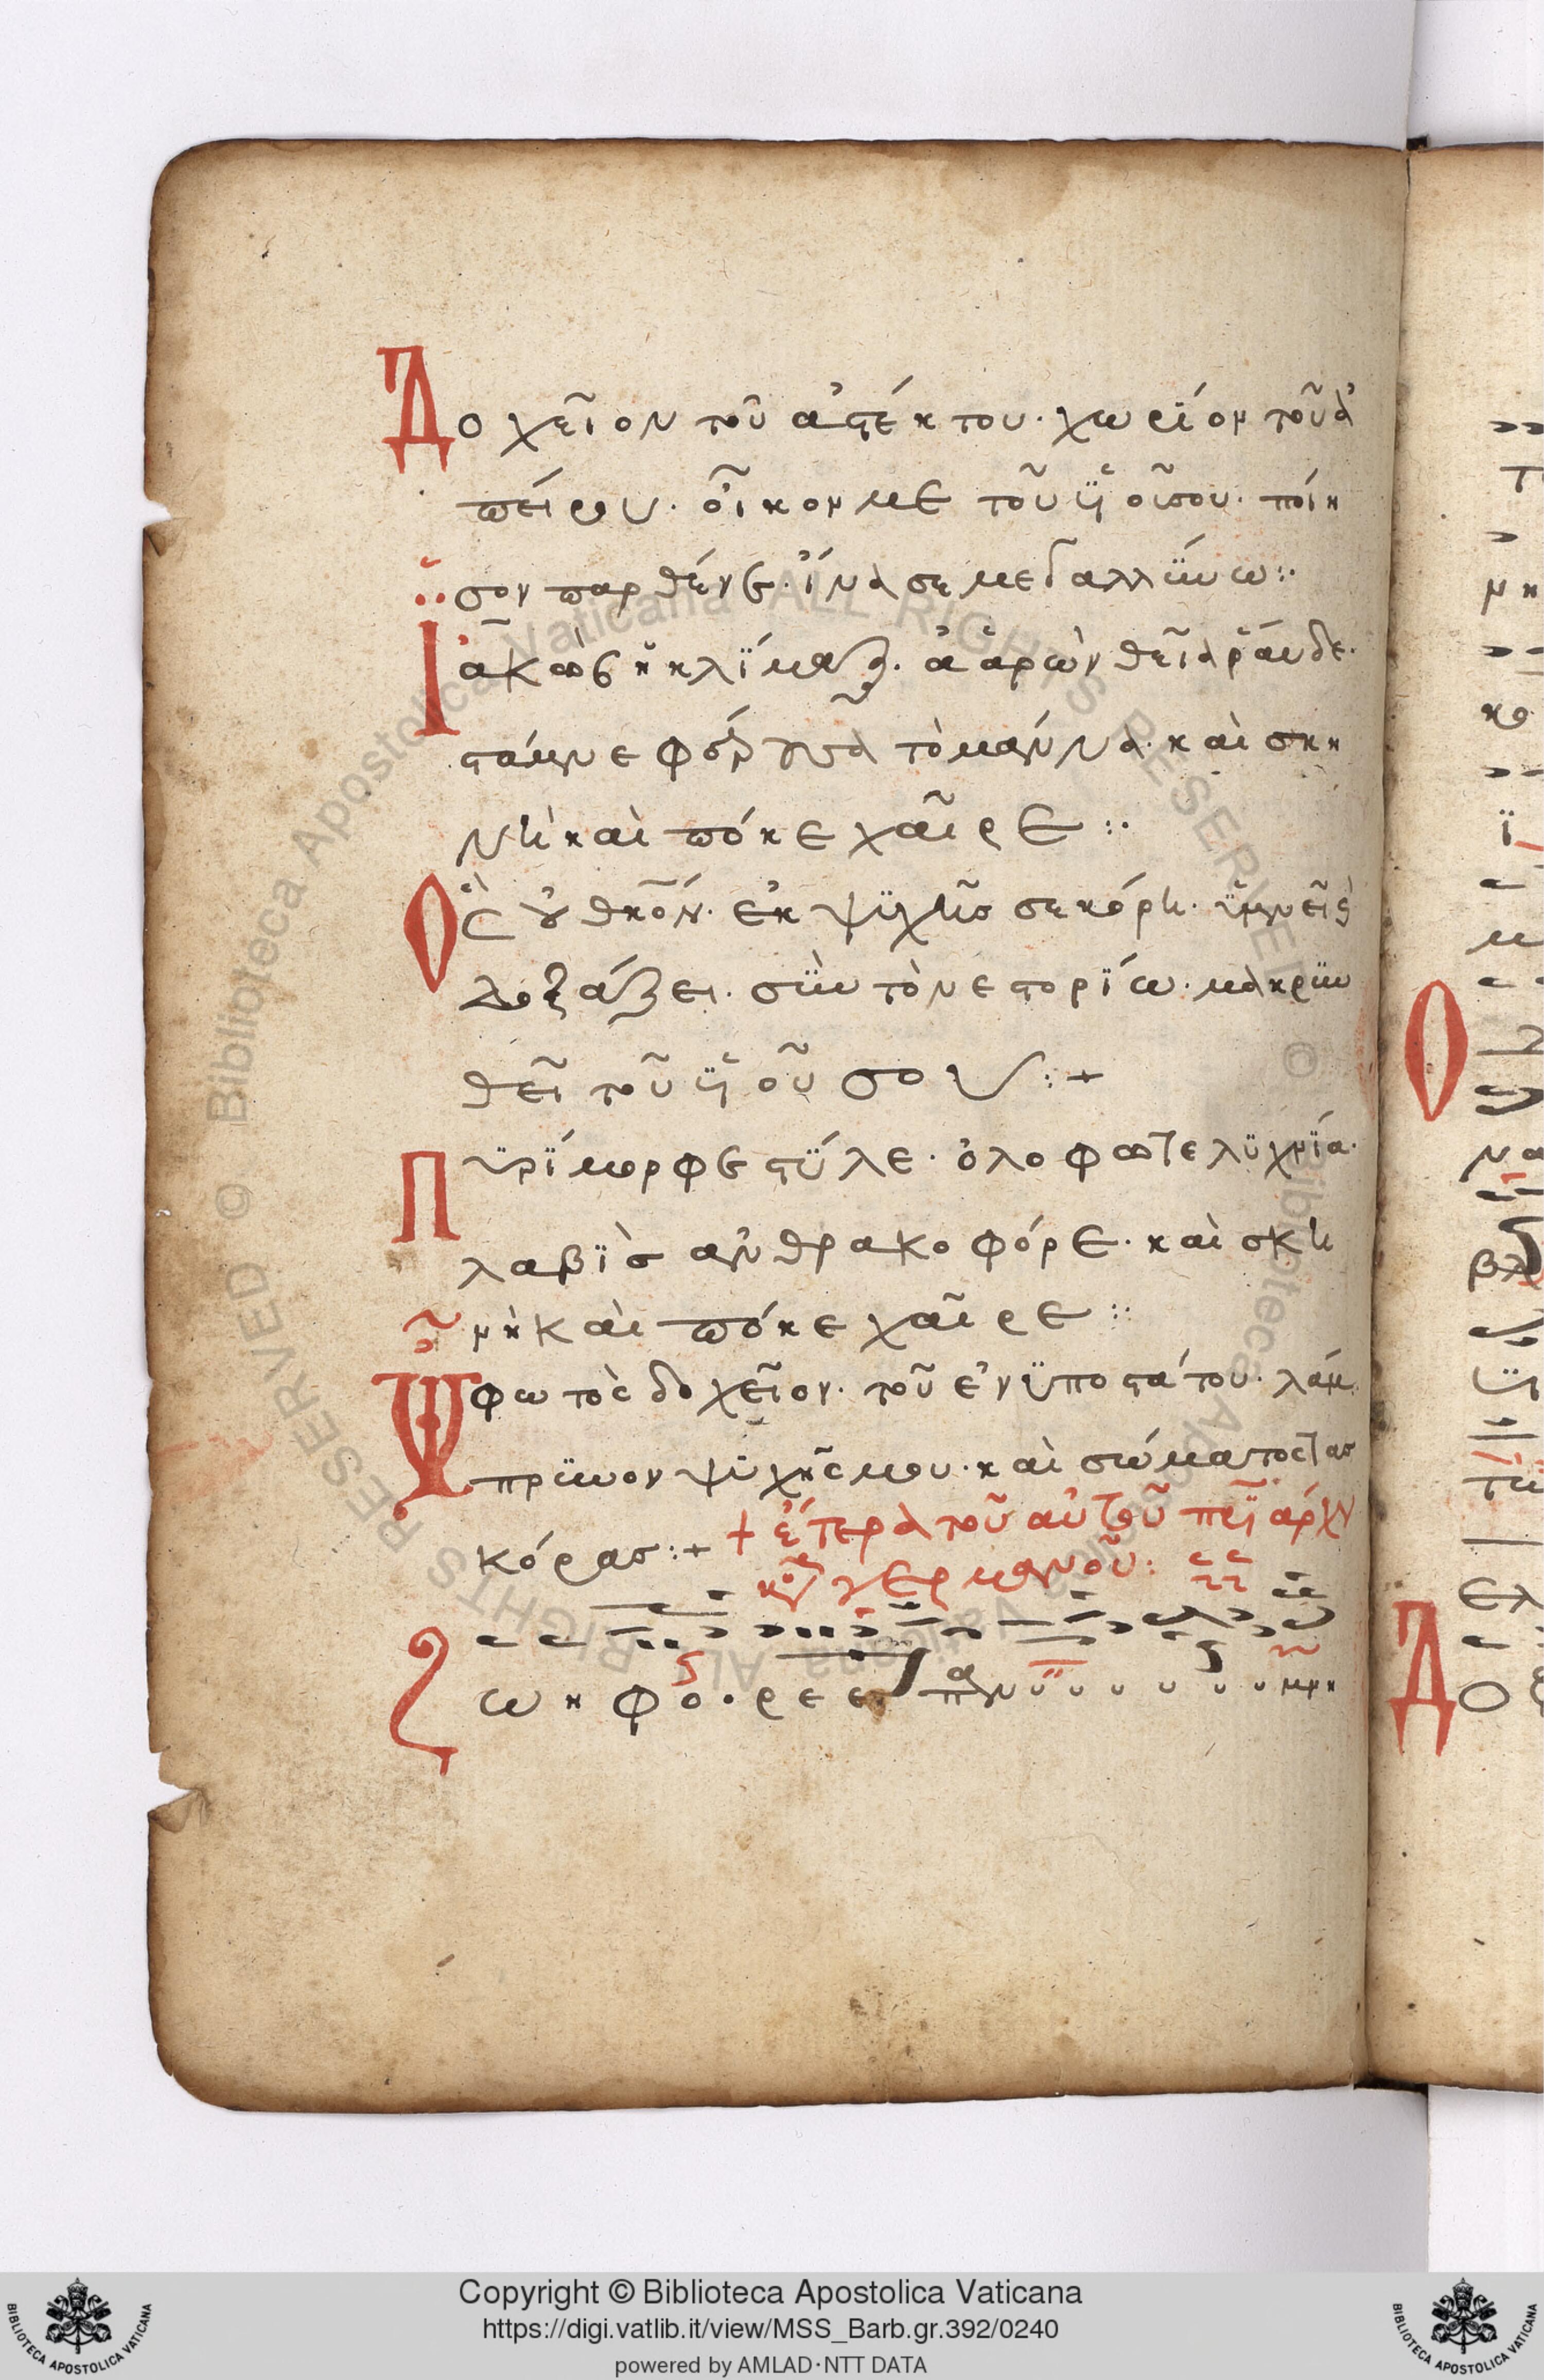 Δοχεῖον τοῦ ἀστέκτου· χωρίον τοῦ ἀ
πείρου· οἶκον με τοῦ υἱοῦ σου· ποίη
σον παρθένε· ἵνα σε μεγαλλύνω :·
Ϊακὼβ ἡ κλίμαξ· ἀαρὼν θεῖα ῥάβδε·
στάμνε τὸ μάννα· καὶ σκη
νὴ καὶ πόκε χαῖρε :·
Ὃς οὐ ἐκ ψυχῆς σε κόρη· ὑμνεῖ
δοξάζει· σὺν τὸ νεστορίω· μακρυν
θεῖ τοῦ υἱοῦ σου :+
Πυρίμορφε στύλε· ὁλόφωτε λυχνία·
λαβὶς ἀνθρακοφόρε· καὶ σκη
νὴ καὶ πόκε χαῖρε ::
Ὦ φωτὸς δοχεῖον· τοῦ ἐνυποστάτου· λάμ
πρυνον ψυχῆς μου· καὶ σώματος τας
κόρας :+ + ἕτερα τοῦ αὐτοῦ
γερμανοῦ :
Ζωηφόρε ε
Ο
Δο
Copyright © Biblioteca Apostolica Vaticana
https://digi.vatlib.it/view/MSS_Barb.gr.392/0240
powered by AMLAD·NTT DATA
BIBLIOTECA APOSTOLICA VATICANA
BIBLIOTECA APOSTOLICA VATICANA
Biblioteca Apostolica Vaticana ALL RIGHTS RESERVED ©